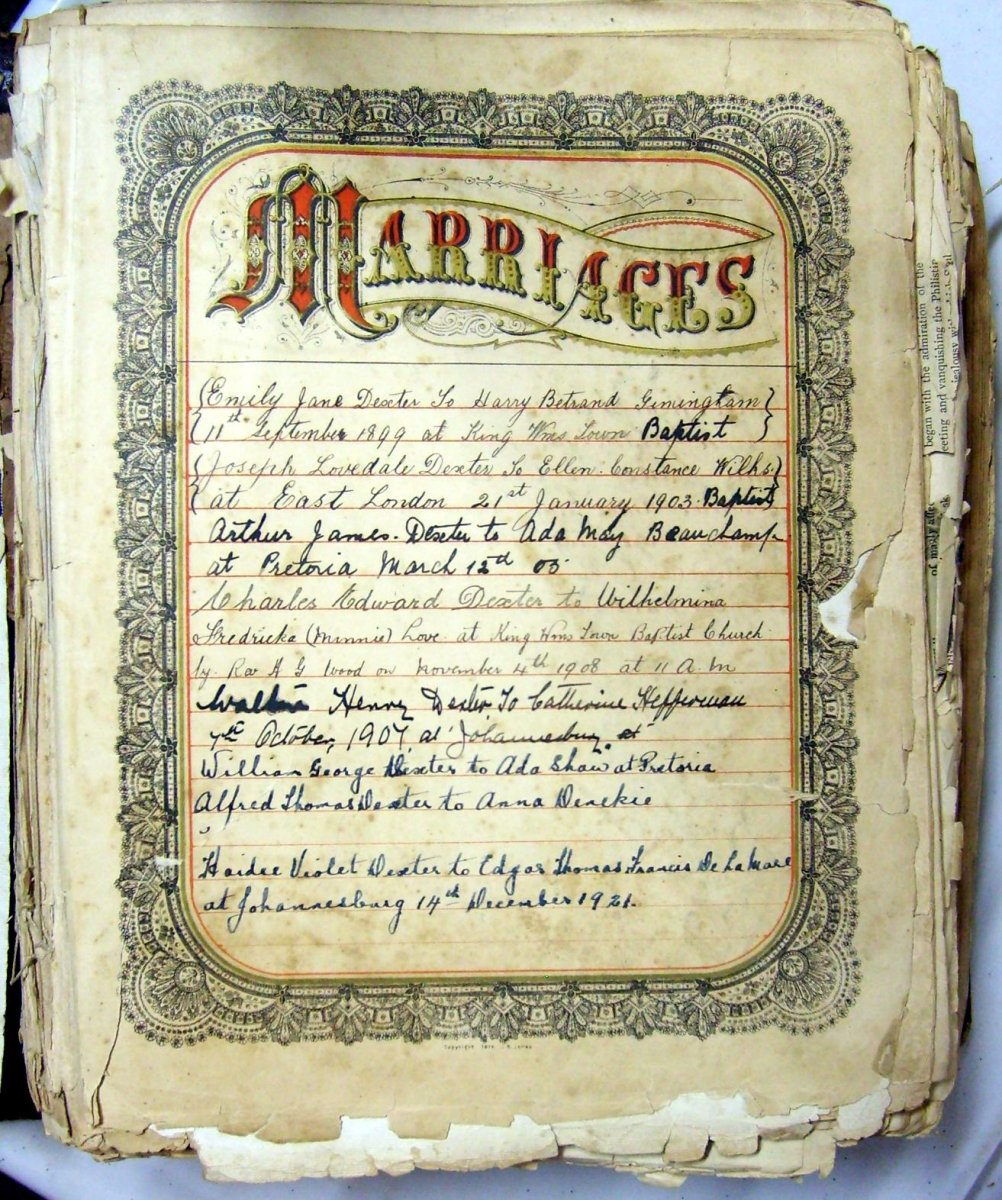 MARRIAGES
{Emily Jane Dexter To Harry Betrand Gimingham}
{11th September 1899 at King Wms Town Baptist}
{Joseph Lovedale Dexter To Ellen Constance Wilks.}
{at East London 21st January 1903. Baptist}
Arthur James. Dexter to Ada May Beauchamp
at Pretoria March 12th 05
Charles Edward Dexter to Wilhelmina
Fredricka (Minnie) Love at King Wms Town Baptist Church
by Rev A G Wood on November 4th 1908 at 11 A.M
Walter Henry Dexter To Catherine Hefferman
October, 1907 at Johannesburg at
William George Dexter to Ada Shaw at Pretoria
Alfred Thomas Dexter to Anna
Violet Dexter to Edgar Thomas Francis De La Mare
at Johannesburg 14th December 1921.
began with the admiration of the
eeting and vanquishing the Philistin
jealousy